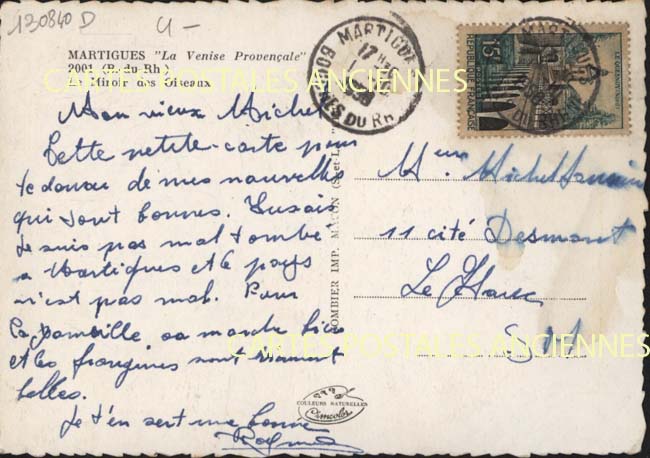 130840 D
MARTIGUES "La Venise Provençale"
2001 (B.-du-Rh.)
Miroir des Oiseaux
MARTIGUES
RÉPUBLIQUE FRANÇAISE
POSTES
15F
CARTES POSTALES ANCIENNES
Mon vieux Michel
Cette petite carte pour
te donner de mes nouvelles
qui sont bonnes. Tu sais
je suis pas mal tombé
a Martigues et le pays
n'est pas mal. Pour
la famille, sa marche bien
et les frangines sont vraiment
belles.
Je t'en sert une bonne
Raymond
COMBIER IMP. MACON
Mr Michel
11 cité Desmont
Le Havre
S. Inf
CARTES POSTALES ANCIENNES
COULEURS NATURELLES
Cimcolor